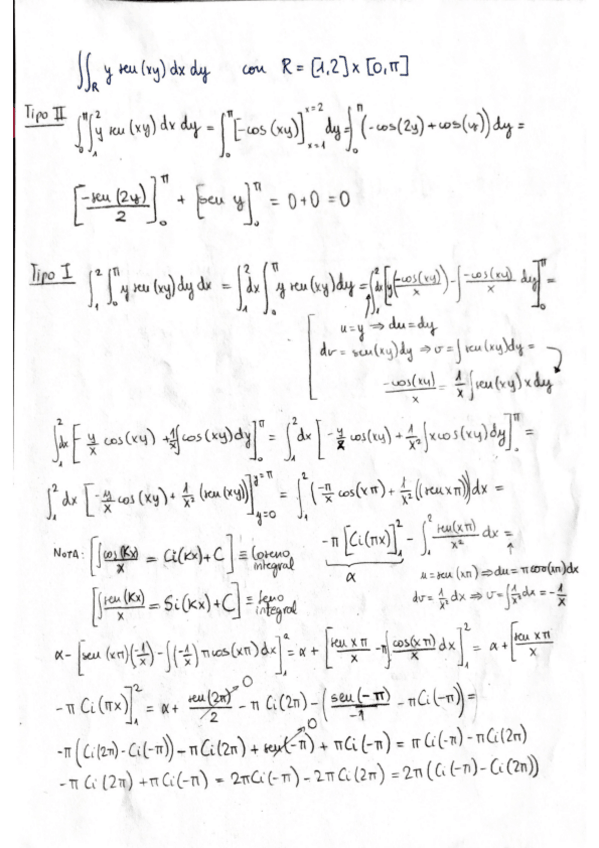 ∬_R y sen (xy) dx dy con R = [1,2] x [0,π]
Tipo II
∫_0^π ∫_1^2 y sen (xy) dx dy = ∫_0^π [-cos (xy)]_{x=1}^{x=2} dy = ∫_0^π (-cos(2y) + cos(y)) dy =
[-sen (2y)/2]_0^π + [sen y]_0^π = 0+0 = 0
Tipo I
∫_1^2 ∫_0^π y sen (xy) dy dx = ∫_1^2 dx ∫_0^π y sen (xy) dy = ∫_1^2 dx [y(-cos(xy)/x) - ∫ -cos(xy)/x dy]_0^π =
u = y ⇒ du = dy
dv = sen(xy) dy ⇒ v = ∫ sen(xy) dy =
-cos(xy)/x = 1/x ∫ sen(xy) x dy
∫_1^2 dx [-y/x cos(xy) + 1/x ∫ cos(xy) dy]_0^π = ∫_1^2 dx [-y/x cos(xy) + 1/x² ∫ x cos(xy) dy]_0^π =
∫_1^2 dx [-y/x cos(xy) + 1/x² (sen(xy))]_{y=0}^{y=π} = ∫_1^2 (-π/x cos(xπ) + 1/x² (sen xπ)) dx =
NOTA: [∫ cos(Kx)/x = Ci(Kx) + C] ≡ Coseno integral
-π [Ci(πx)]_1^2 - ∫_1^2 sen(xπ)/x² dx =
α
[∫ sen(Kx)/x = Si(Kx) + C] ≡ Seno integral
u = sen (xπ) ⇒ du = π cos(xπ) dx
dv = 1/x² dx ⇒ v = ∫ 1/x² dx = -1/x
α - [sen (xπ)(-1/x) - ∫(-1/x) π cos(xπ) dx]_1^2 = α + [sen xπ/x - π ∫ cos(xπ)/x dx]_1^2 = α + [sen xπ/x
-π Ci(πx)]_1^2 = α + sen(2π)/2 → 0 - π Ci(2π) - (sen(-π)/-1 - π Ci(-π)) =
-π (Ci(2π) - Ci(-π)) - π Ci(2π) + sen(-π) → 0 + π Ci(-π) = π Ci(-π) - π Ci(2π)
-π Ci(2π) + π Ci(-π) = 2π Ci(-π) - 2π Ci(2π) = 2π (Ci(-π) - Ci(2π))